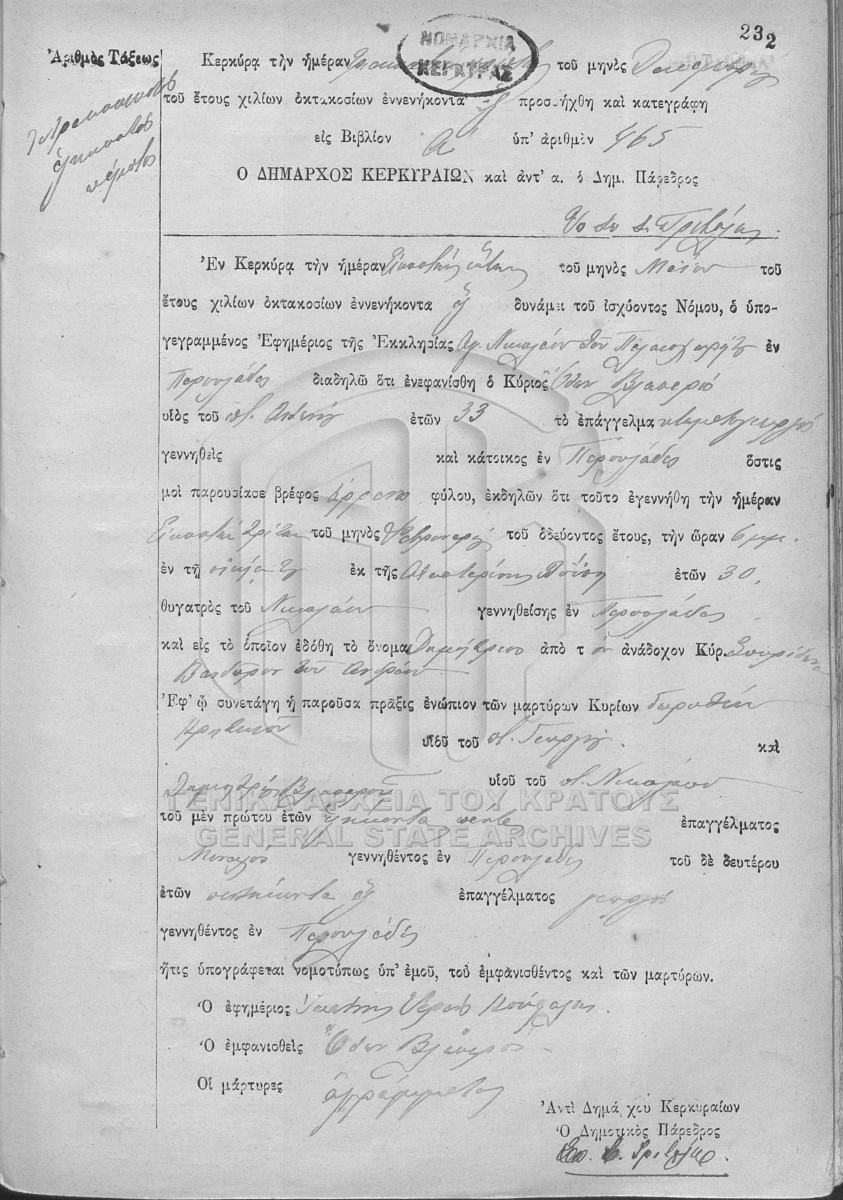 232
Ἀριθμὸς Τάξεως
ΝΟΜΑΡΧΙΑ
ΚΕΡΚΥΡΑΣ
Κερκύρᾳ τὴν ἡμέραν τοῦ μηνὸς
τοῦ ἔτους χιλίων ὀκτακοσίων ἐννενήκοντα ἓξ προσήχθη καὶ κατεγράφη
εἰς Βιβλίον Α ὑπ' ἀριθμὸν 465
τετρακοσιοστὸς
ἑξηκοστὸς
πέμπτος
Ὁ ΔΗΜΑΡΧΟΣ ΚΕΡΚΥΡΑΙΩΝ καὶ ἀντ' α. ὁ Δημ. Πάρεδρος
Ἐν Κερκύρᾳ τὴν ἡμέραν Εἰκοστὴν τοῦ μηνὸς Μαΐου τοῦ
ἔτους χιλίων ὀκτακοσίων ἐννενήκοντα ἓξ δυνάμει τοῦ ἰσχύοντος Νόμου, ὁ ὑπο-
γεγραμμένος Ἐφημέριος τῆς Ἐκκλησίας Ἁγ. Νικολάου τοῦ ἐν
Περουλάδες διαδηλῶ ὅτι ἐνεφανίσθη ὁ Κύριος Βλάσερὸς
υἱὸς τοῦ ποτ. Ἀντώνη ἐτῶν 33 τὸ ἐπάγγελμα κτηματογεωργὸς
γεννηθεὶς καὶ κάτοικος ἐν Περουλάδες ὅστις
μοὶ παρουσίασε βρέφος ἄρρενος φύλου, ἐκδηλῶν ὅτι τοῦτο ἐγεννήθη τὴν ἡμέραν
Εἰκοστὴν τρίτην τοῦ μηνὸς Φεβρουαρίου τοῦ ὁδεύοντος ἔτους, τὴν ὥραν 6 μμ.
ἐν τῇ οἰκίᾳ του ἐκ τῆς Αἰκατερίνης ἐτῶν 30.
θυγατρὸς τοῦ Νικολάου γεννηθείσης ἐν Περουλάδες
καὶ εἰς τὸ ὁποῖον ἐδόθη τὸ ὄνομα Δημήτριος ἀπὸ τὸν ἀνάδοχον Κύρ. Σπυρίδωνα
τοῦ Ἀνδρέου
Ἐφ' ᾧ συνετάγη ἡ παροῦσα πρᾶξις ἐνώπιον τῶν μαρτύρων Κυρίων Δωροθέου
Κρητικοῦ υἱοῦ τοῦ ποτ. Γεωργίου. καὶ
Δημητρίου Βλασεροῦ υἱοῦ τοῦ ποτ. Νικολάου
ΓΕΝΙΚΑ ΑΡΧΕΙΑ ΤΟΥ ΚΡΑΤΟΥΣ
GENERAL STATE ARCHIVES
τοῦ μὲν πρώτου ἐτῶν ἑξήκοντα πέντε ἐπαγγέλματος
Μοναχὸς γεννηθέντος ἐν Περουλάδες τοῦ δὲ δευτέρου
ἐτῶν πεντήκοντα ἓξ ἐπαγγέλματος γεωργὸς
γεννηθέντος ἐν Περουλάδες
ἥτις ὑπογράφεται νομοτύπως ὑπ' ἐμοῦ, τοῦ ἐμφανισθέντος καὶ τῶν μαρτύρων.
Ὁ ἐφημέριος Ἰωάννης Ἱερεὺς
Ὁ ἐμφανισθεὶς
Οἱ μάρτυρες ἀγράμματοι
Ἀντὶ Δημάρχου Κερκυραίων
Ὁ Δημοτικὸς Πάρεδρος